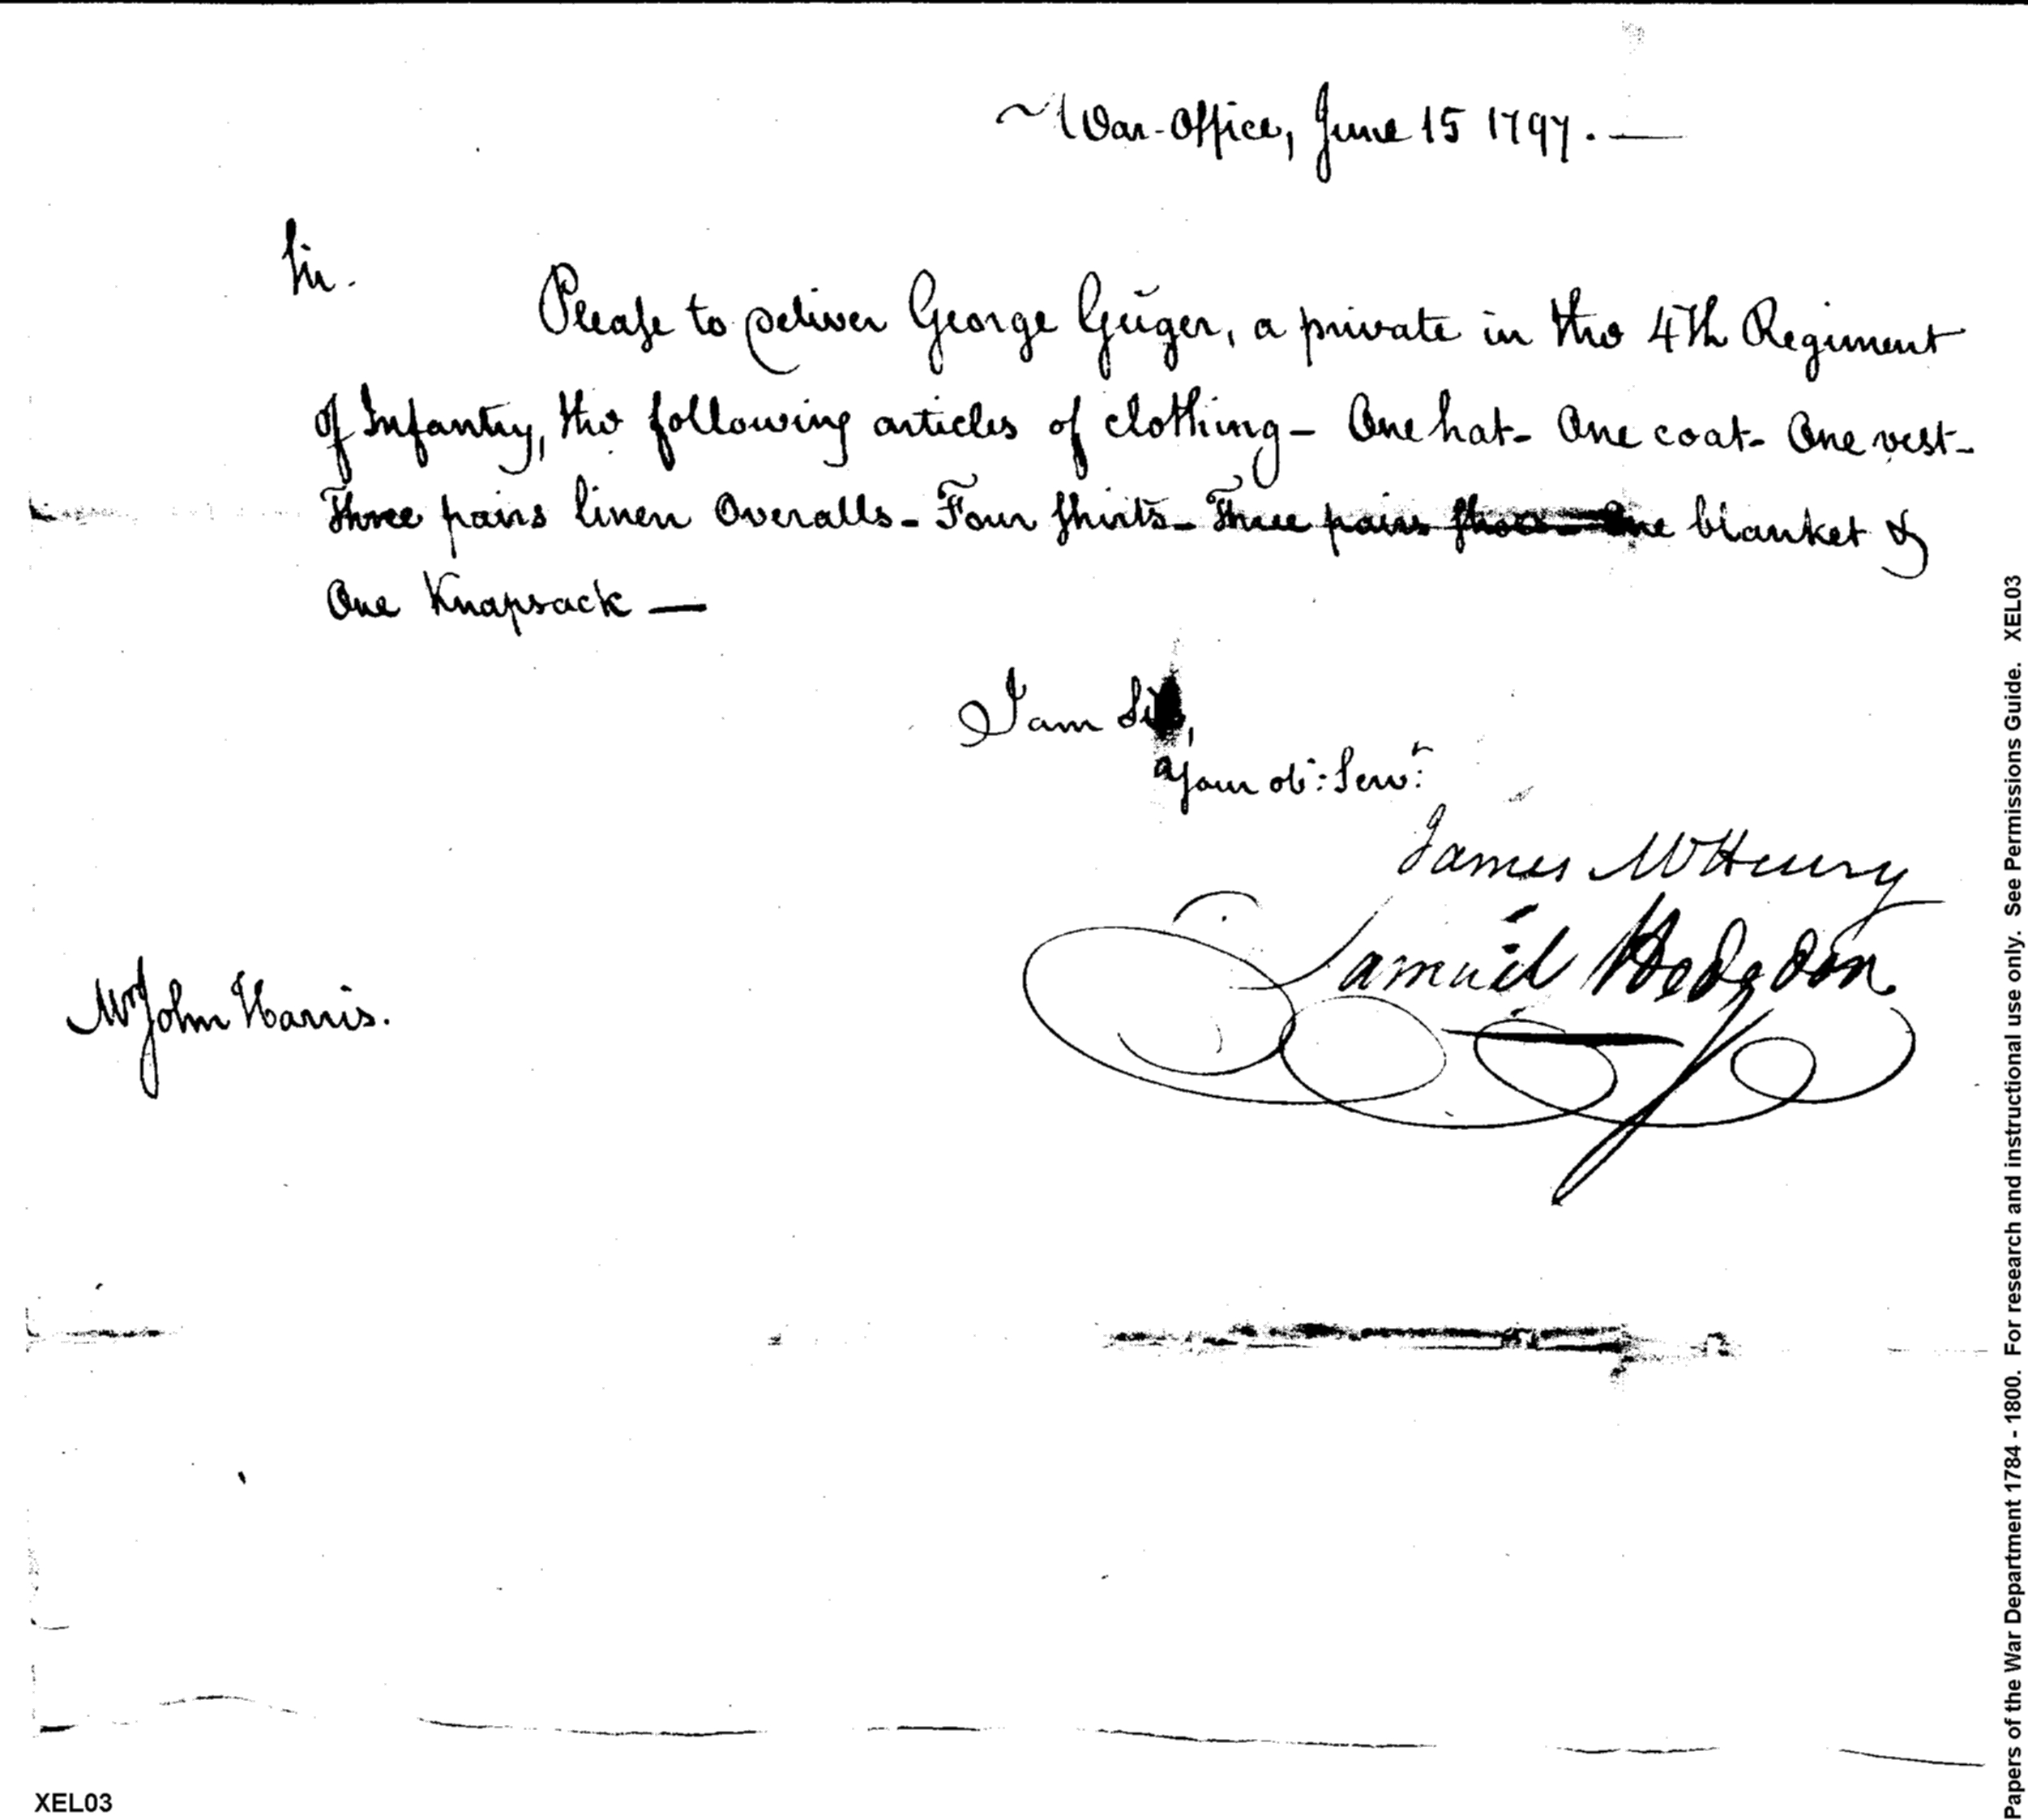 War-Office, June 15 1797. —
Sir.
Please to deliver George Güger, a private in the 4th Regiment
of Infantry, the following articles of clothing – One hat- One coat- One vest-
Three pairs linen Overalls - Four shirts - Three pairs shoes - One blanket &
One Knapsack —
I am Sir,
Your obt: Servt:
James McHenry
Samuel Hodgdon
Mr John Harris.
Papers of the War Department 1784 - 1800. For research and instructional use only. See Permissions Guide. XEL03
XEL03